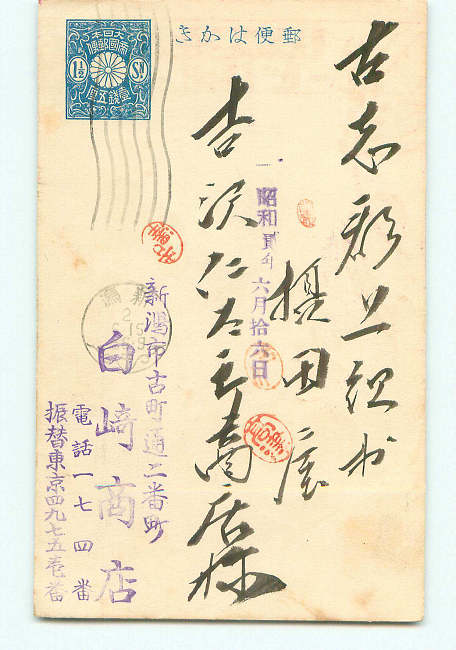 郵便はかき
大日本
帝國郵便
1½ Sn
壹錢五厘
古志郡上組村
摂田屋
吉沢仁太郎商店様
昭和貳年六月拾六日
新潟
新潟市古町通二番町
白崎商店
電話一七四番
振替東京四九七五壱番